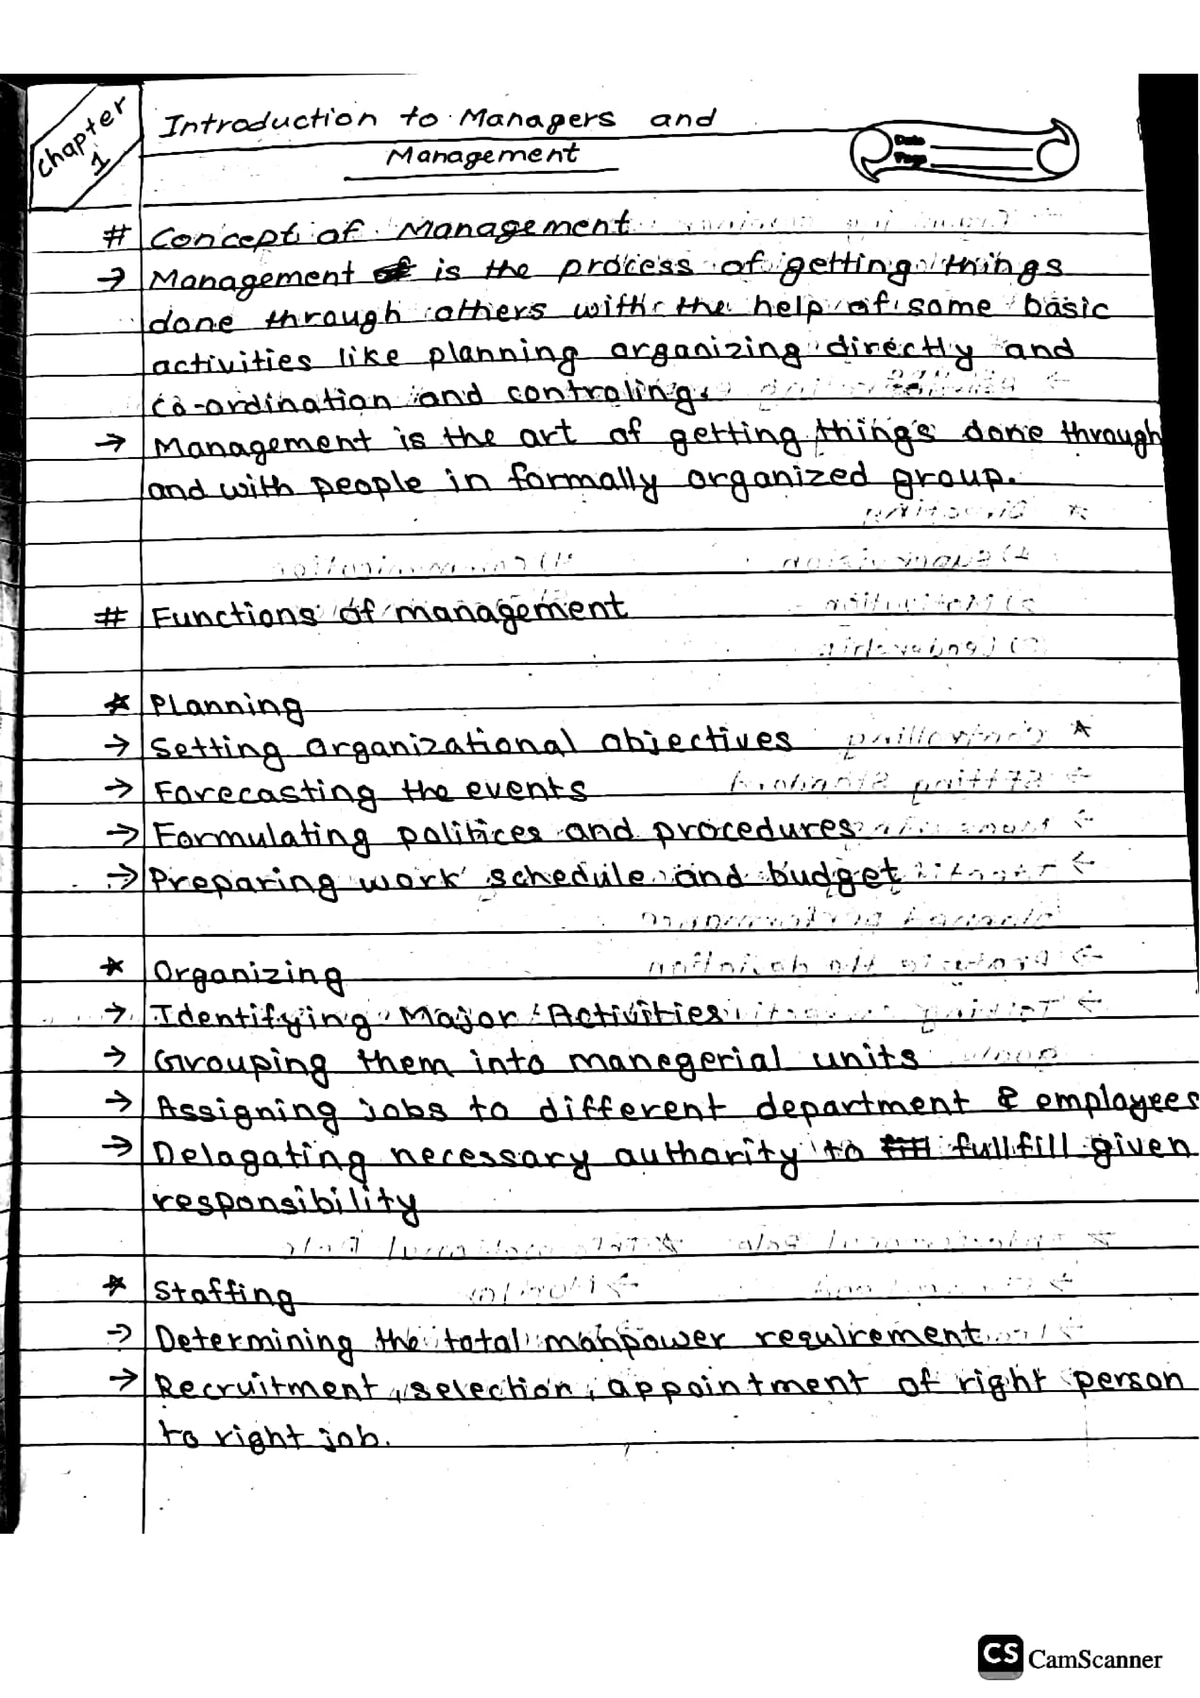 Chapter 1
Introduction to Managers and
Management
Date
Page
# Concept of Management
→ Management is the process of getting things
done through others with the help of some basic
activities like planning organizing directly and
co-ordination and controling.
→ Management is the art of getting things done through
and with people in formally organized group.
# Functions of management
* Planning
→ Setting organizational objectives
→ Forecasting the events
→ Formulating politices and procedures
→ Preparing work schedule and budget
* Organizing
→ Identifying Major Activities
→ Grouping them into manegerial units
→ Assigning jobs to different department & employees
→ Delagating necessary authority to fullfill given
responsibility
* Staffing
→ Determining the total manpower requirement
→ Recruitment, selection, appointment of right person
to right job.
CS CamScanner